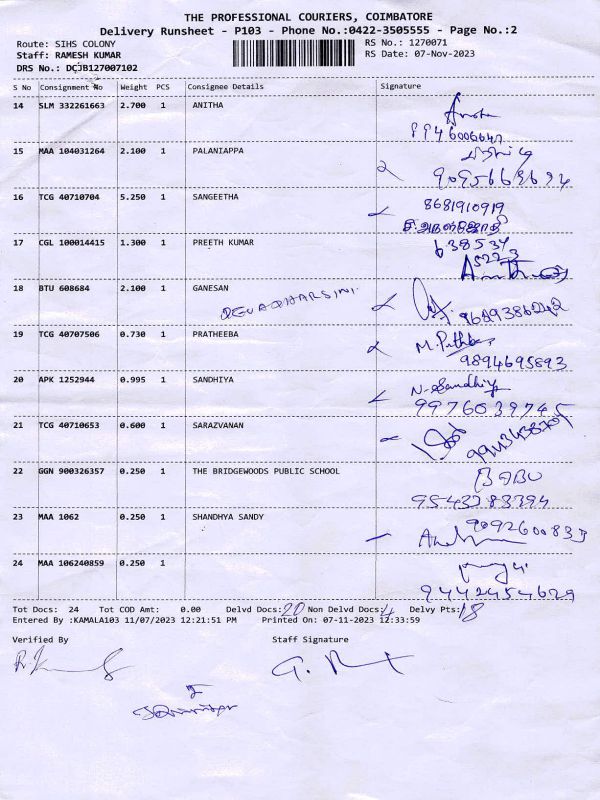 THE PROFESSIONAL COURIERS, COIMBATORE
Delivery Runsheet - P103 - Phone No.:0422-3505555 - Page No.:2
Route: SIHS COLONY RS No.: 1270071
Staff: RAMESH KUMAR RS Date: 07-Nov-2023
DRS No.: DCJB127007102
S No Consignment No Weight PCS Consignee Details Signature
14 SLM 332261663 2.700 1 ANITHA
15 MAA 104031264 2.100 1 PALANIAPPA
9095669694
16 TCG 40710704 5.250 1 SANGEETHA 8681910919
17 CGL 100014415 1.300 1 PREETH KUMAR 638534
5223
18 BTU 608684 2.100 1 GANESAN
DEVADHARSINI
19 TCG 40707506 0.730 1 PRATHEEBA
9894695893
20 APK 1252944 0.995 1 SANDHIYA N. Sandhiya
9976039745
21 TCG 40710653 0.600 1 SARAZVANAN
22 GGN 900326357 0.250 1 THE BRIDGEWOODS PUBLIC SCHOOL BABU
9543383394
23 MAA 1062 0.250 1 SHANDHYA SANDY 9092600833
24 MAA 106240859 0.250 1
9442454629
Tot Docs: 24 Tot COD Amt: 0.00 Delvd Docs: 20 Non Delvd Docs: 4 Delvy Pts: 18
Entered By :KAMALA103 11/07/2023 12:21:51 PM Printed On: 07-11-2023 12:33:59
Verified By Staff Signature